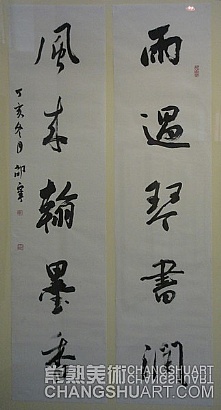 雨過琴書潤
風來翰墨香
丁亥冬月
常熟美術 CHANGSHUART
CHANGSHUART.COM